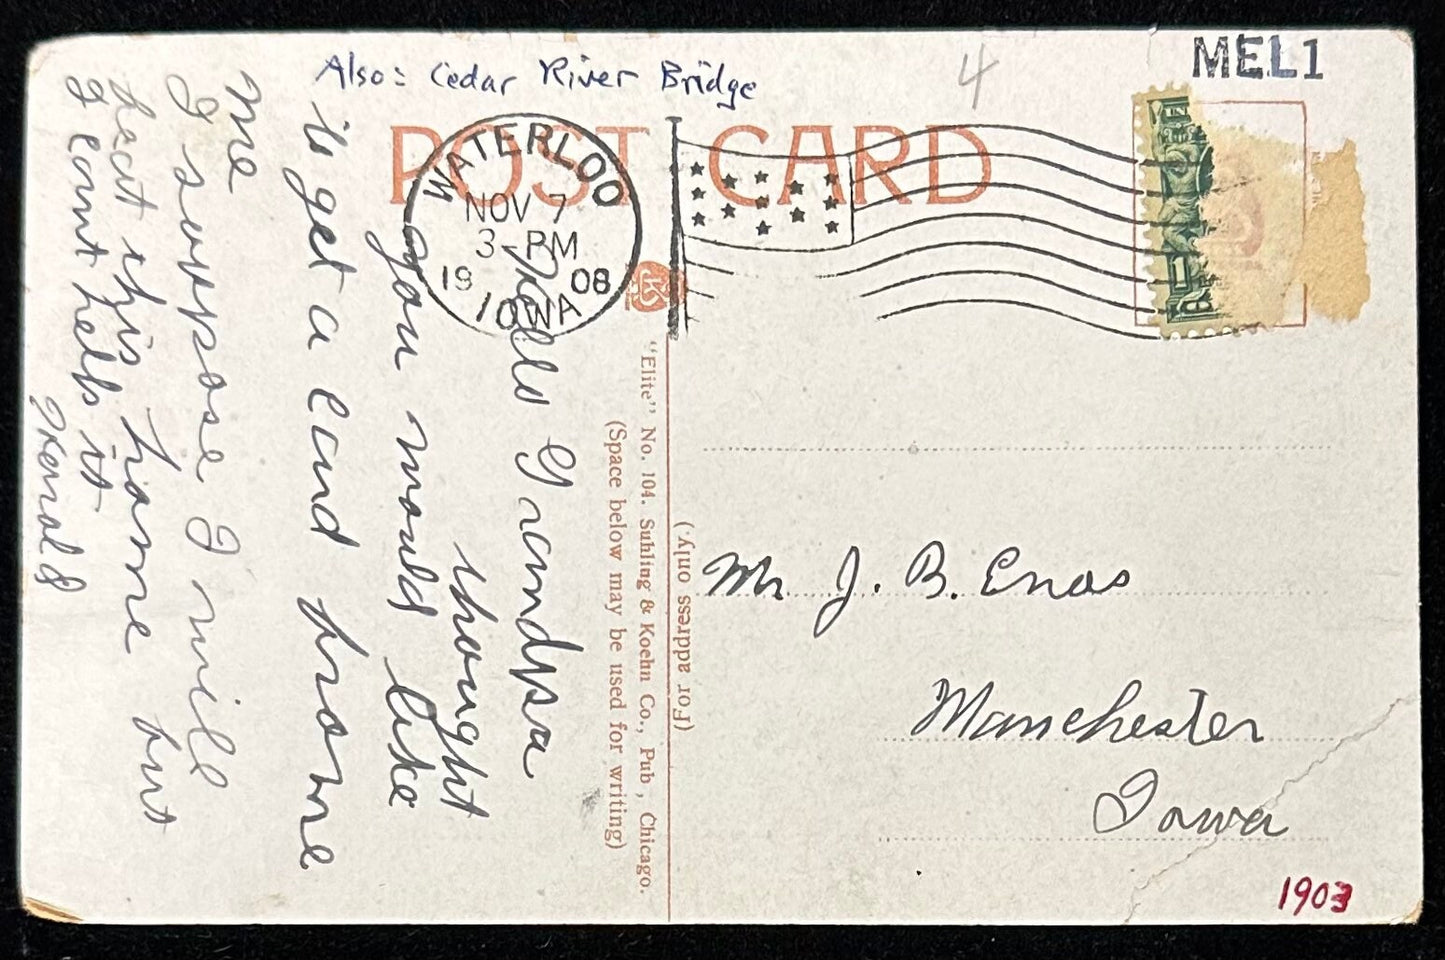 Also: Cedar River Bridge
4
MEL1
POST CARD
WATERLOO
NOV 7
3-PM
19 08
IOWA
Hello Grandpa
thought
you would like
to get a card from
me
I suppose I will
beat this home but
I cant help it
"Elite" No. 104. Suhling & Koehn Co., Pub., Chicago.
(Space below may be used for writing)
(For address only.)
Mr J. B. Enos
Manchester
Iowa
1903